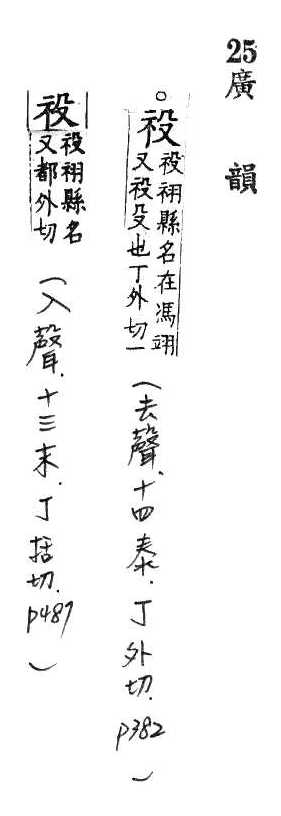 25廣韻
○祋
祋祤縣名在馮翊
又祋殳也丁外切一
(去聲.十四泰.丁外切.p382)
祋
祋祤縣名
又都外切
(入聲.十三末.丁括切.p487)